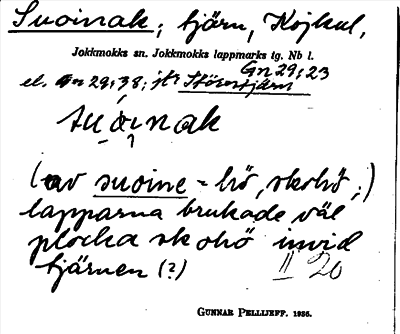 Suoinak; tjärn, Kojkul,
Jokkmokks sn. Jokkmokks lappmarks tg. Nb l.
Gn 29; 23
el. Gn 29; 38; jfr Störestjärn
suoinak
(av suoine = hö, skohö;)
lapparna brukade väl
plocka skohö invid
tjärnen (?) II 20
GUNNAR PELLIJEFF. 1936.